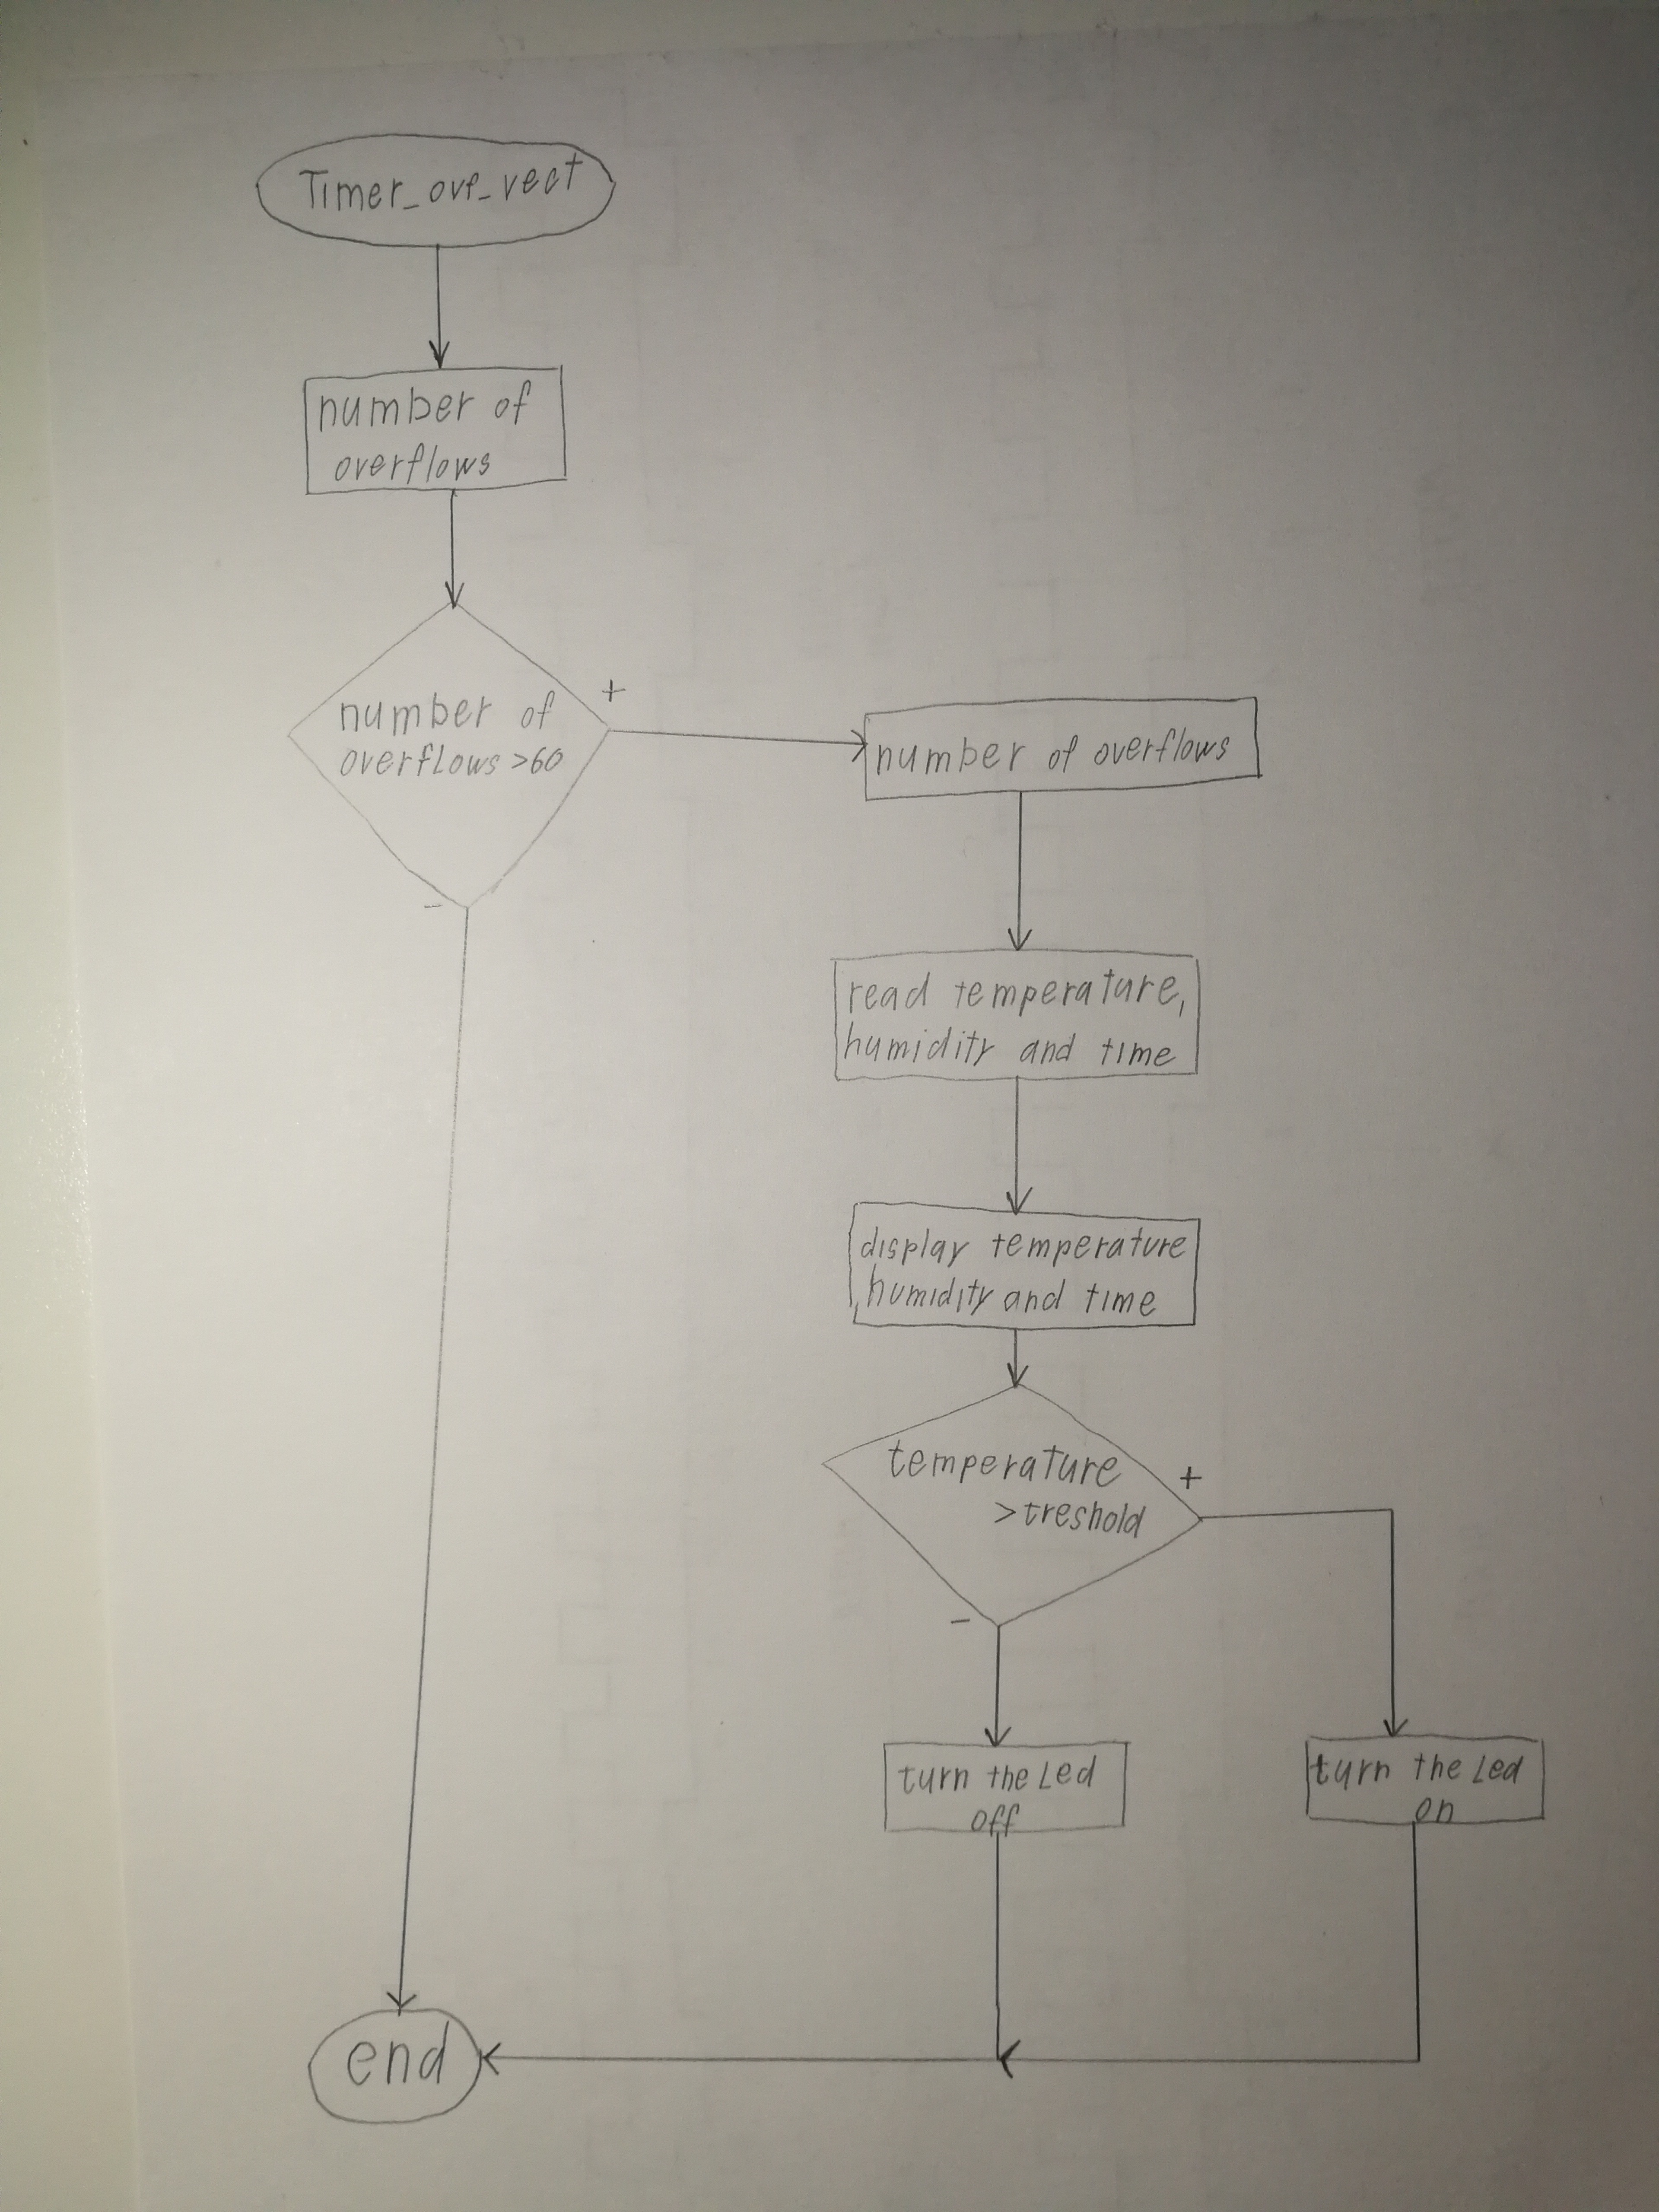 Timer_ovf_vect
number of
overflows
number of
overflows >60
+
-
number of overflows
read temperature,
humidity and time
display temperature
humidity and time
temperature
>treshold
+
-
turn the Led
off
turn the Led
on
end